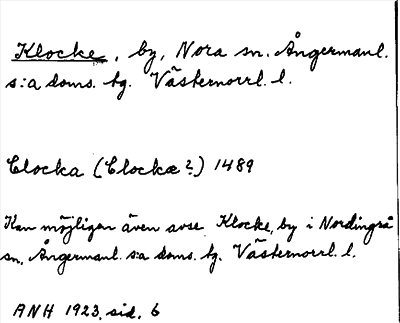 Klocke, by, Nora sn. Ångermanl.
s:a doms. tg. Västernorrl. l.
Clocka (Clockæ?) 1489
Kan möjligen även avse Klocke, by i Nordingrå
sn, Ångermanl. s:a doms. tg. Västernorrl. l.
ANH 1923, sid. 6